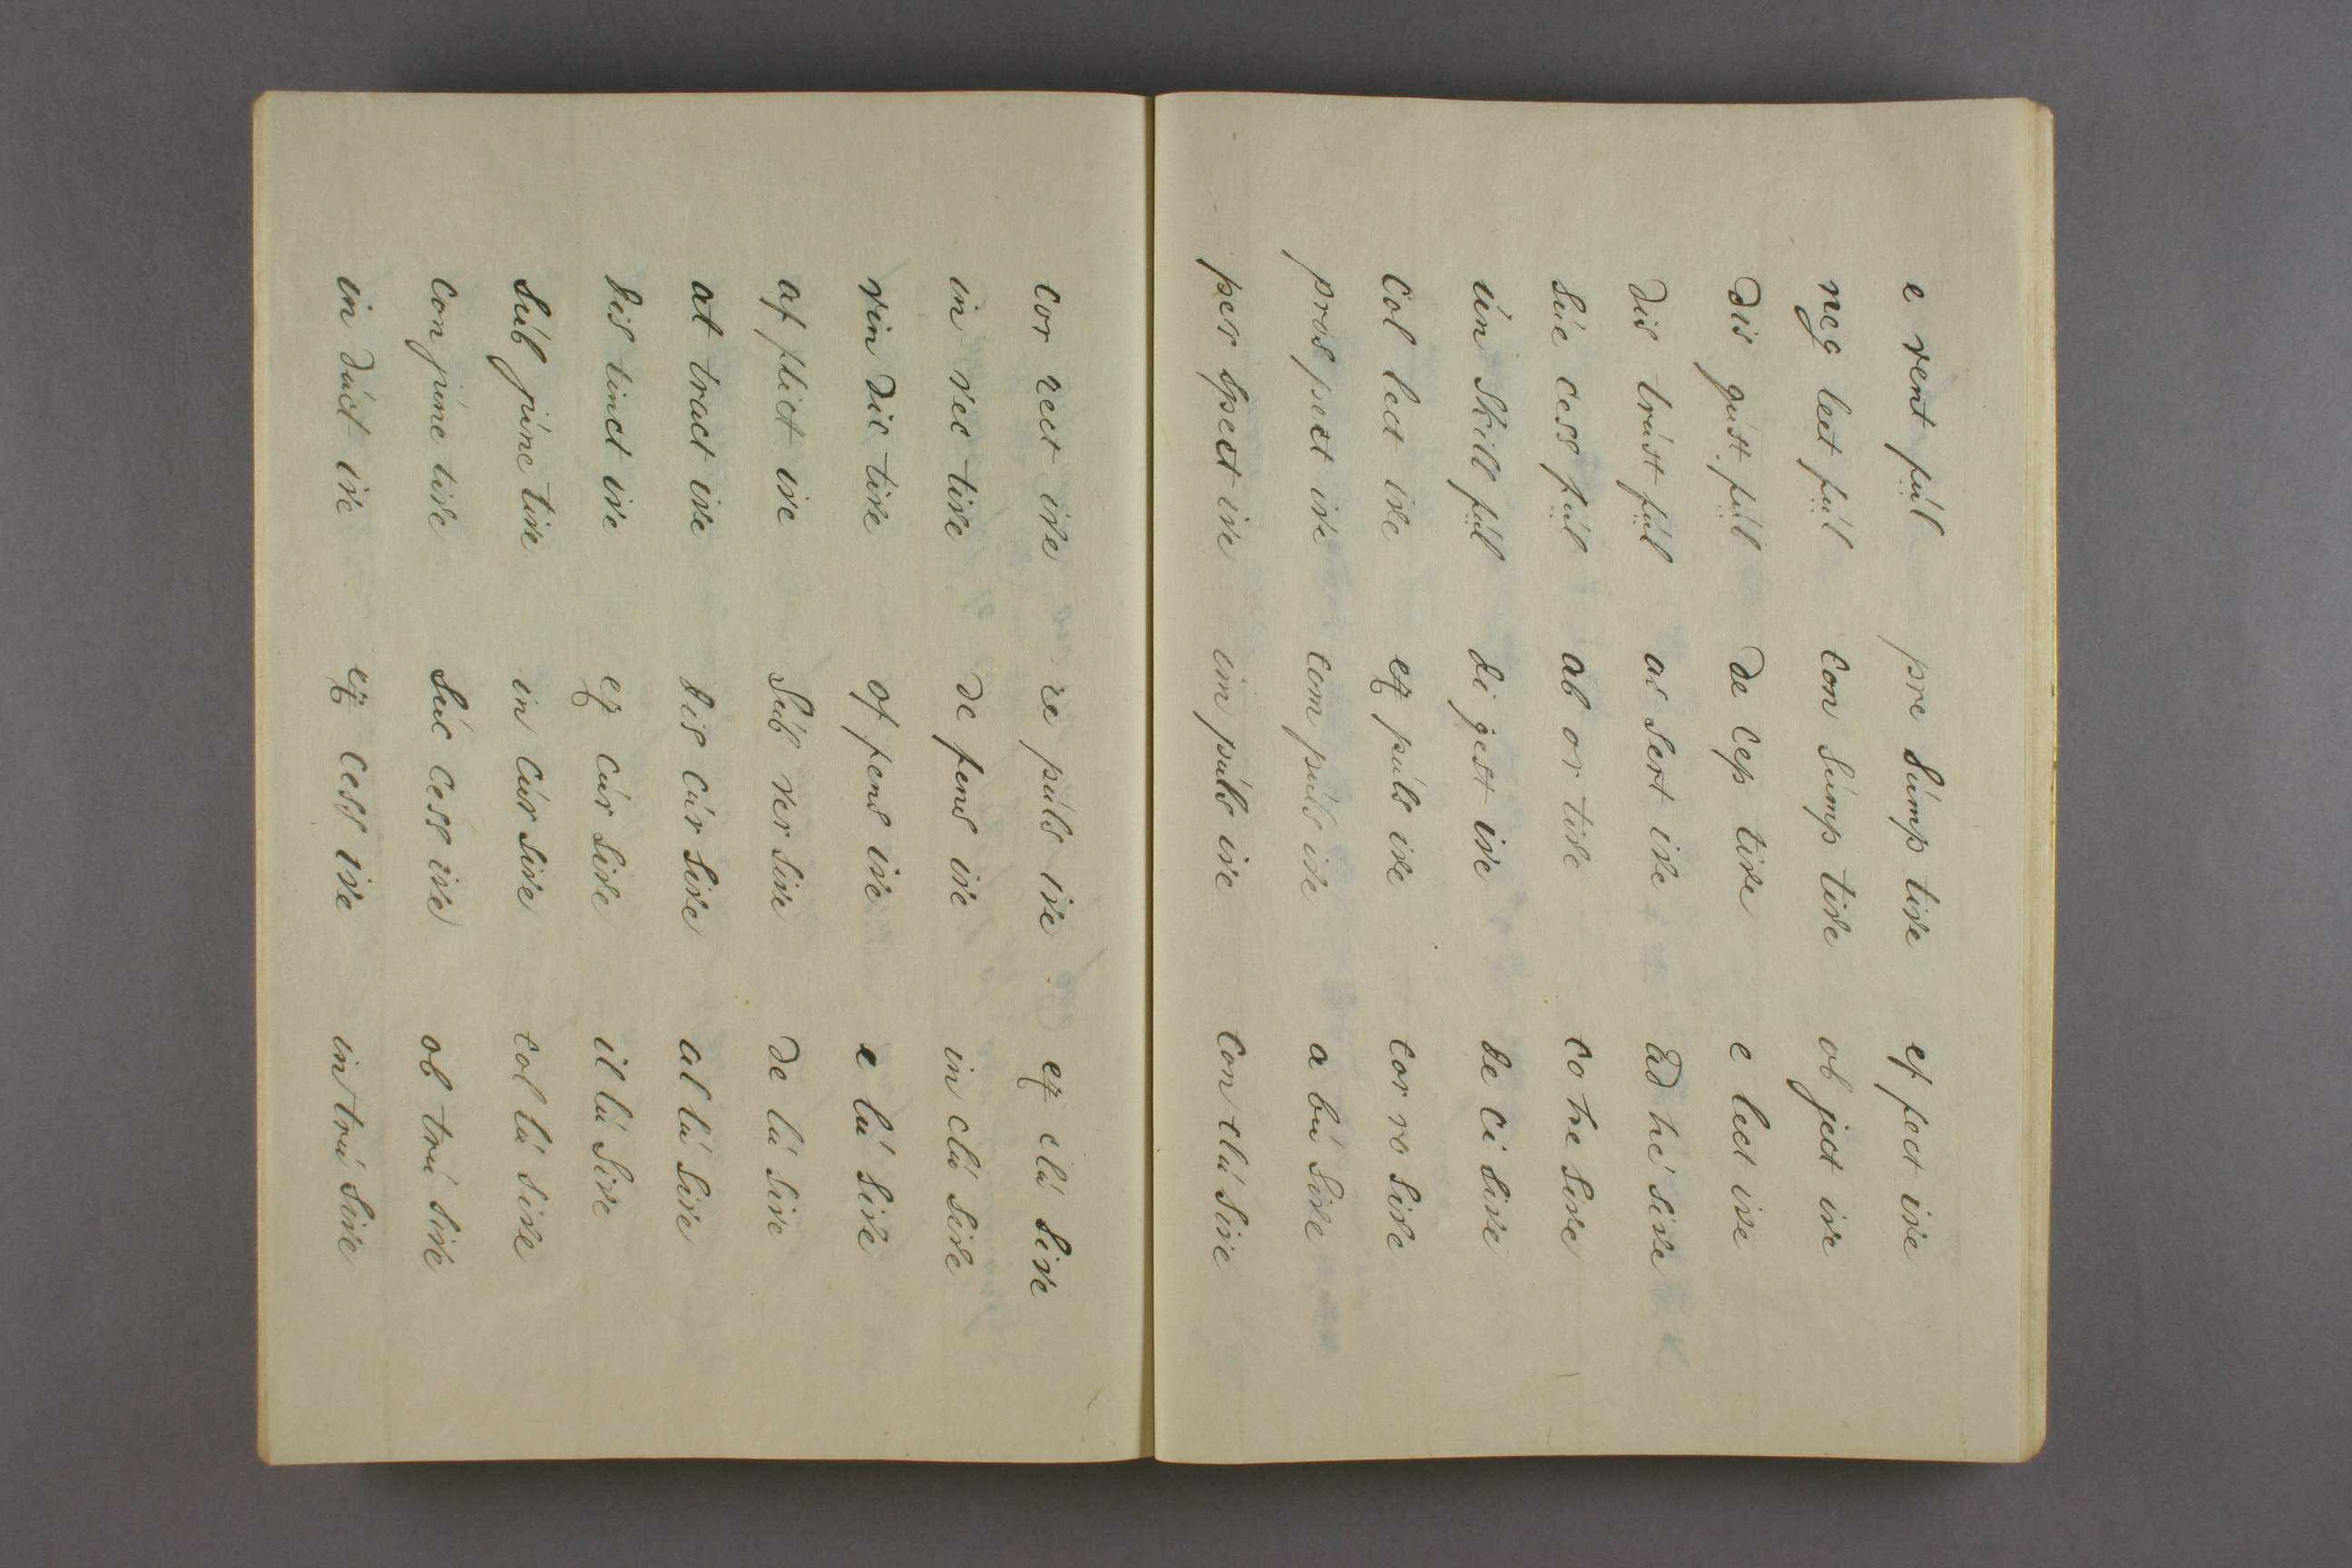 e vent fúl pre súmp tive ef fect ive
neg lect fúl con súmp tive ob ject ive
dis gúst fúl de cep tive e lect ive
dis trúst fúl as sert ive ad hé sive
súc cess fúl ab or tive co he sive
ún skill fúl di gest ive de ci sive
col lect ive ex púls ive cor ro sive
pros pect ive com púls ive a bú sive
per spect ive im púls ive con clú sive
cor rect ive re púls ive ex clú sive
in vec tive de fens ive in clú sive
vin dic tive of fens ive e lú sive
af flict ive súb ver sive de lú sive
at tract ive dis cúr sive al lú sive
dis tinct ive ex cúr sive il lú sive
súb júnc tive in cúr sive col lú sive
con júnc tive súc cess ive ob trú sive
in dúct ive ex cess ive in trú sive